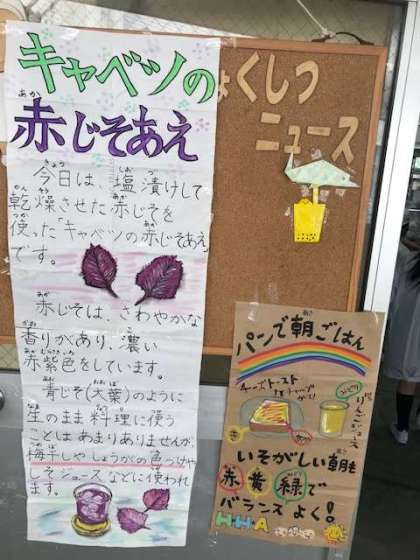 キャベツの
赤じそあえ
今日は、塩漬けして
乾燥させた赤じそを
使った「キャベツの赤じそあえ」
です。
赤じそは、さわやかな
香りがあり、濃い
赤紫色をしています。
青じそ(大葉)のように
生のまま料理に使う
ことはあまりありませんが、
梅干しやしょうがの色づけや
しそジュースなどに使われ
ます。
くしつ
ニュース
パンで朝ごはん
チーズトースト
りんごジュース
いそがしい朝も
赤黄緑で
バランスよく!